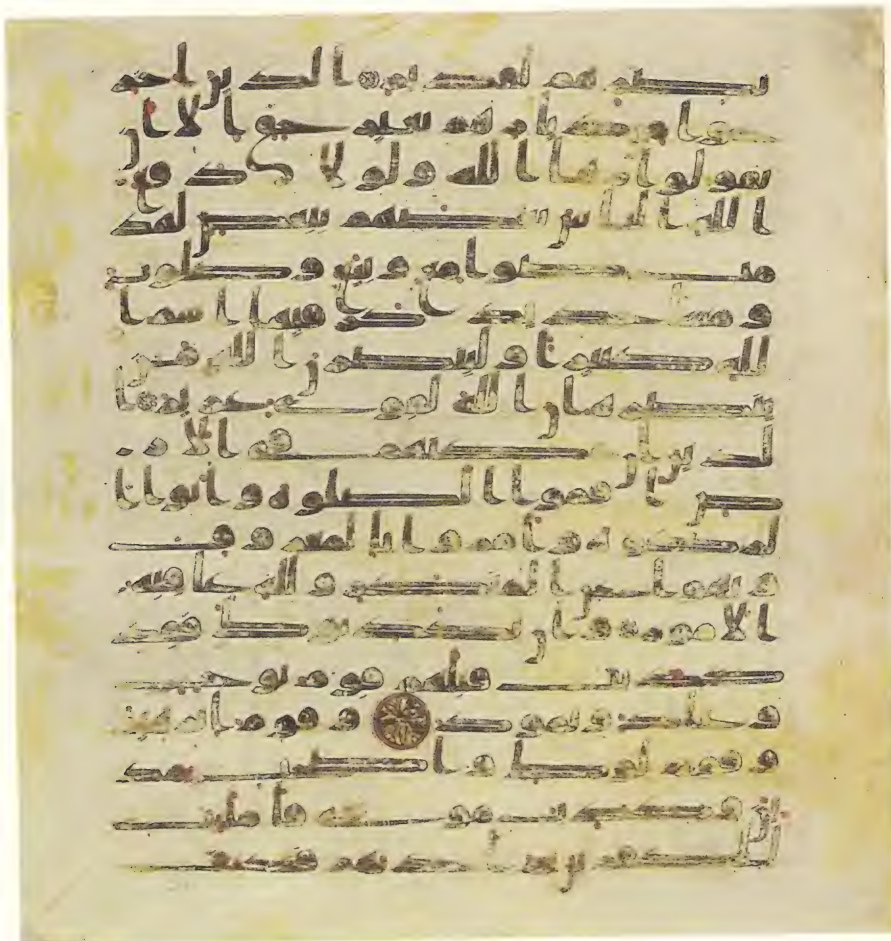 نصرهم لقدير الذين اخر
جوا من ديرهم بغير حق الا ان
يقولوا ربنا الله ولولا دفع
الله الناس بعضهم ببعض لهد
مت صومع وبيع وصلوت
ومسجد يذكر فيها اسم ا
لله كثيرا ولينصرن الله من
ينصره ان الله لقوي عزيز ا
لذين ان مكنهم في الار
ض اقاموا الصلوة واتوا ا
لزكوة وامروا بالمعروف
ونهوا عن المنكر ولله عقبة
الامور وان يكذبوك فقد
كذبت قبلهم قوم نوح
وعاد وثمود وقوم ابرهيم
وقوم لوط واصحب مد
ين وكذب موسى فامليت
للكفرين ثم اخذتهم فكيف